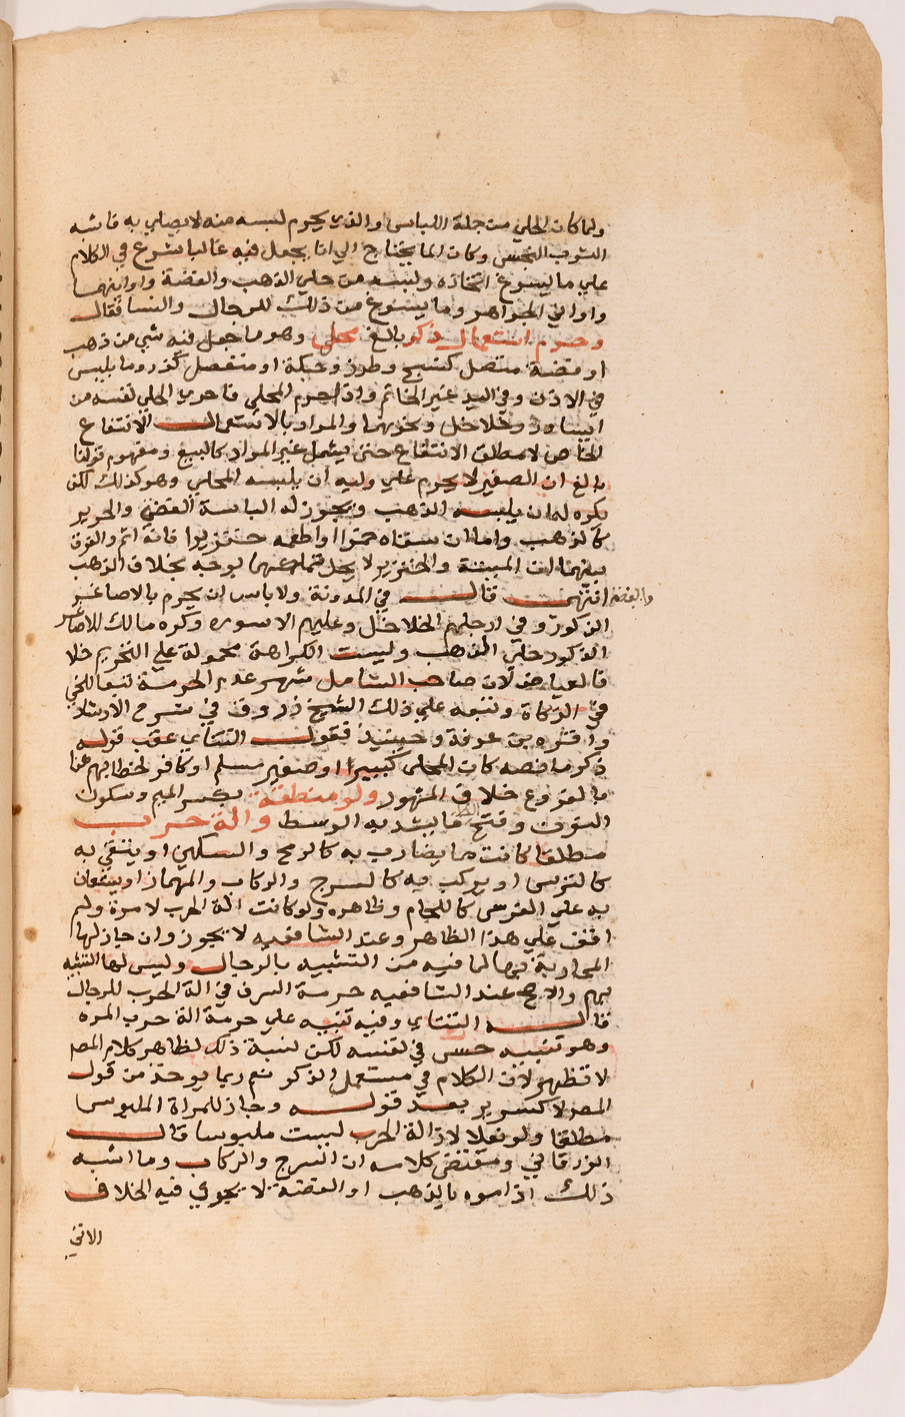 ولما كان الحلي من جملة اللباس والذي يحرم لبسه منه لا يصلي به فاشبه
الثوب النجس وكان الما يحتاج الي انا يجعل فيه غالبا شرع في الكلام
علي ما يسوغ اتخاذه ولبسه من حلي الذهب والفضة واوانيهما
واواني الجواهر وما يسوغ من ذلك للرجال والنسا فقال
وحرم استعمال ذكر بالغ محلي وهو ما جعل فيه شي من ذهب
او فضة متصل كنسج وطرز وحبكة او منفصل كزر وما يلبس
في الاذن وفي اليد غير الخاتم واذا حرم المحلي فاحري الحلي نفسه من
اساور وخلاخل ونحوهما والمراد بالاستعمال الانتفاع
الخاص لا مطلق الانتفاع حتي يشمل غير المراد كالبيع ومفهوم قولنا
بالغ ان الصغير لا يحرم علي وليه ان يلبسه المحلي وهو كذلك لكن
يكره له ان يلبسه الذهب ويجوز له الباسه الفضة والحرير
كالذهب واما ان سقاه خمرا او اطعمه خنزيرا فانه اثم والفرق
بينهما ان الميتة والخنزير لا يحل بوجه بخلاف الذهب
والفضة انتهي قال في المدونة ولا باس ان يحرم بالاصاغر
الذكور وفي ارجلهم الخلاخل وعليهم الاسوره وكره مالك للاصاغر
الذكور حلي الذهب وليست الكراهة محمولة علي التحريم خلا
فا لعياض لان صاحب الشامل شهر عدم الحرمة تبعا للخمي
في الزكاة ونبه علي ذلك الشيخ زروق في شرح الارشاد
واقره بن عرفة وحينيذ فقول التتاي عقب قوله
ذكر ما نصه كان المحلي كبيرا او صغير مسلم او كافر لخطابهم عندنا
بالفروع خلاف المشهور ولو منطقة بكسر الميم وسكون
النون وفتح الطا ما يشد به الوسط والة حرب
مطلقا كانت مما يضارب به كالرمح والسكين او يتقي به
كالترس او يركب فيه كالسرج والركاب والمهماز او يستعان
به علي الفرس كاللجام وظاهره ولو كانت الة الحرب لامرة ولم
اقف علي هذا الظاهر وعند الشافعيه لا يجوز وان جاز لها
المحاربة بها لما فيه من التشبيه بالرجال وليس لها التشبه
بهم والاصح عند الشافعيه حرمة السرف في الة الحرب للرجال
قاله التتاي وفيه تنبيه علي حرمة الة حرب المرة
وهو تنبيه حسن في نفسه لكن نسبة ذلك لظاهر كلام المصـ
لا تظهر لان الكلام في مستعمل الذكر نعم ربما يوخذ من قول
المصـ لا كسرير بعد قوله وجاز للمراة الملبوس
مطلقا ولو نعلا لان الة الحرب ليست ملبوسا قال
الزرقاني ومقتضي كلامه ان السرج والركاب وما اشبه
ذلك اذا موه بالذهب او الفضة لا يجري فيه الخلاف
الاتي